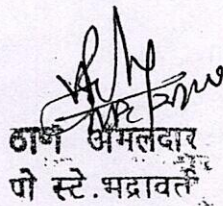 ठाणे अमलदार
पो स्टे.भद्रावती